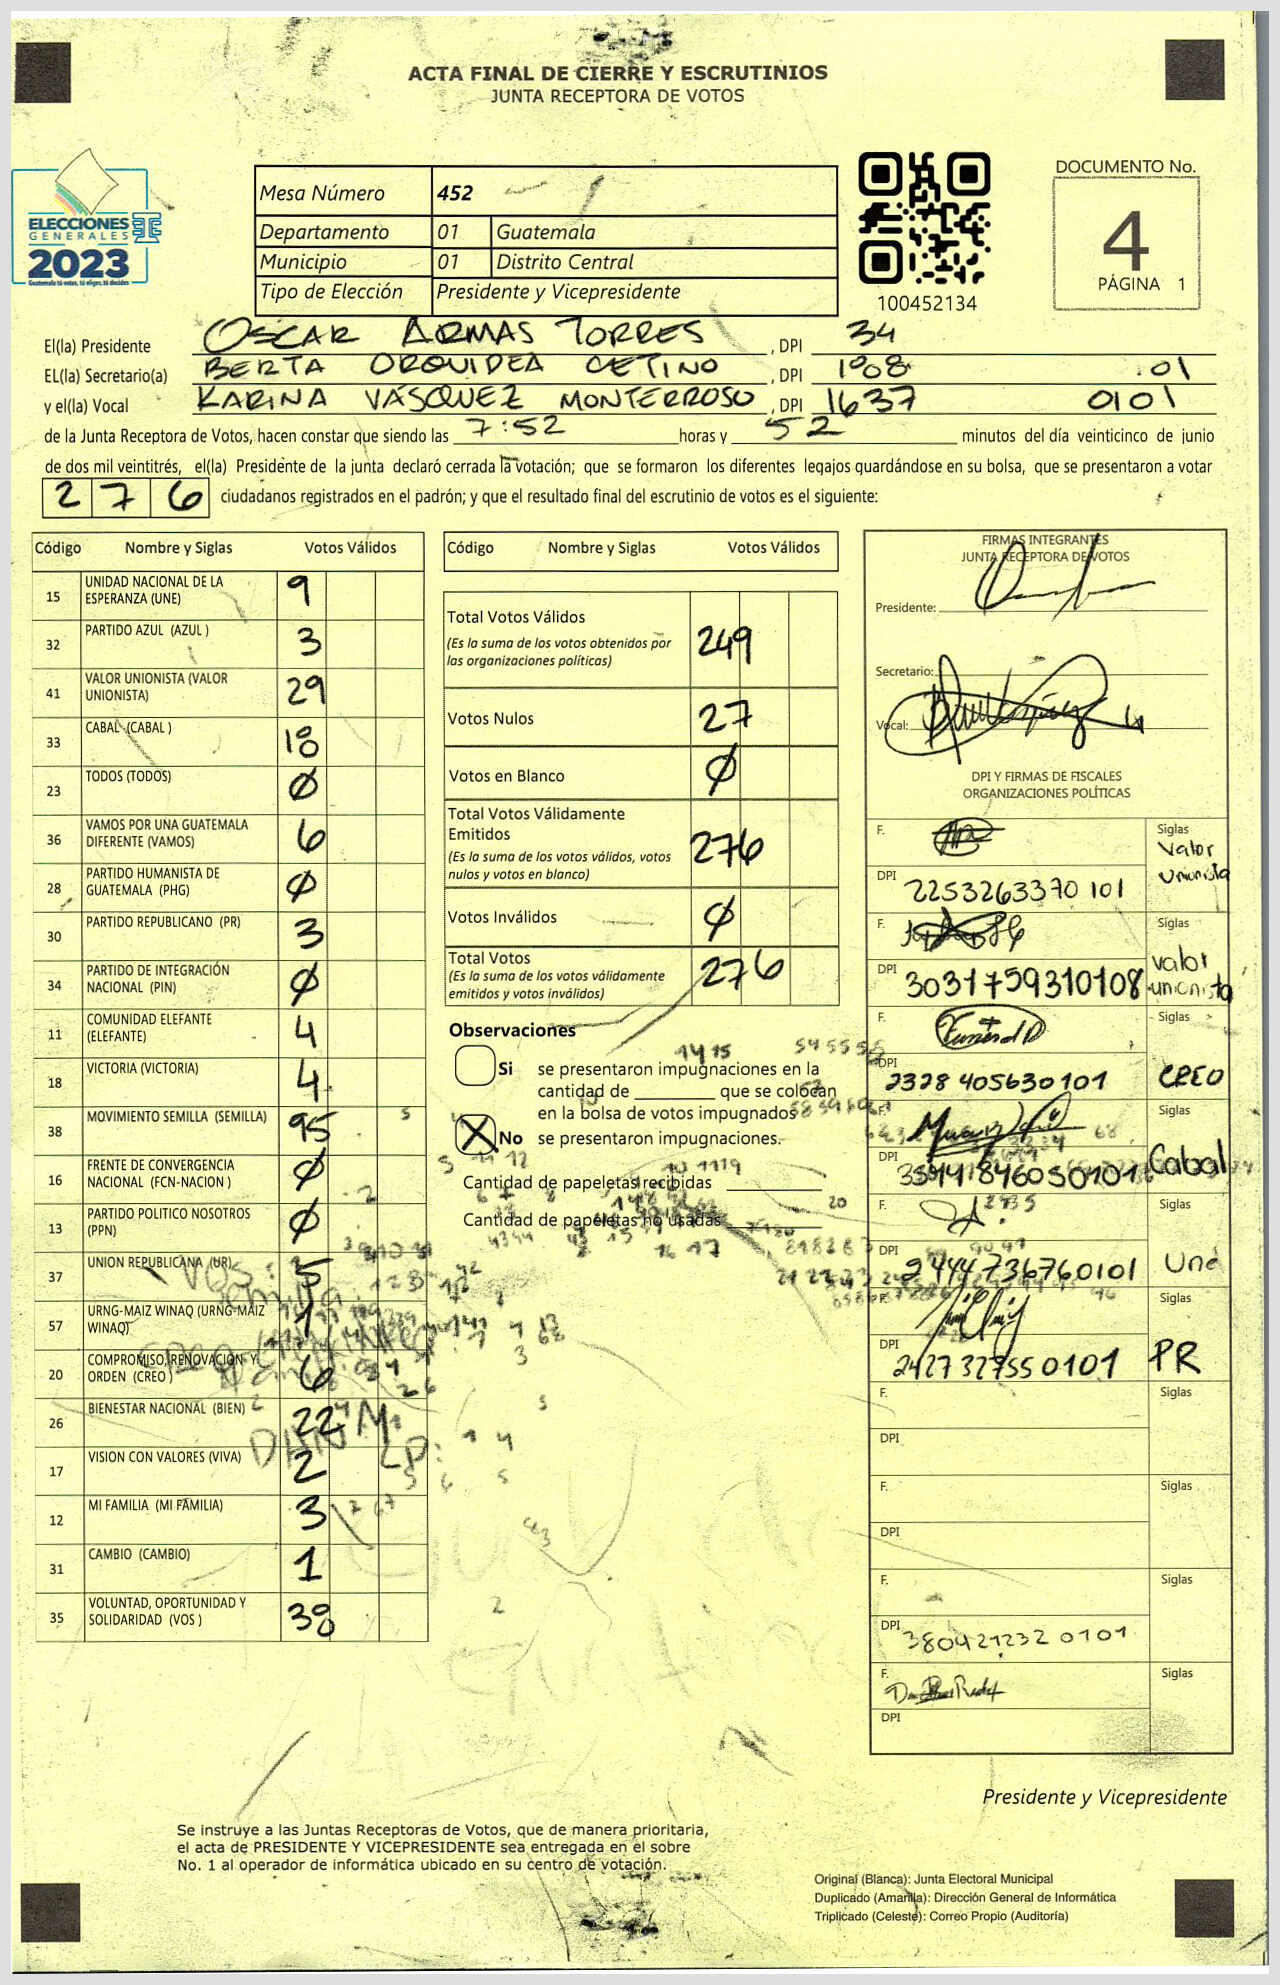 ACTA FINAL DE CIERRE Y ESCRUTINIOS
JUNTA RECEPTORA DE VOTOS
ELECCIONES
GENERALES
2023
Guatemala tú votas, tú eliges, tú decides
Mesa Número 452
Departamento 01 Guatemala
Municipio 01 Distrito Central
Tipo de Elección Presidente y Vicepresidente
100452134
DOCUMENTO No.
4
PÁGINA 1
El(la) Presidente OSCAR ARMAS TORRES , DPI 34
EL(la) Secretario(a) BERTA ORQUIDEA CETINO , DPI 1908 01
y el(la) Vocal KARINA VÁSQUEZ MONTERROSO , DPI 1637 0101
de la Junta Receptora de Votos, hacen constar que siendo las 7:52 horas y 52 minutos del día veinticinco de junio
de dos mil veintitrés, el(la) Presidente de la junta declaró cerrada la votación; que se formaron los diferentes legajos quardándose en su bolsa, que se presentaron a votar
276 ciudadanos registrados en el padrón; y que el resultado final del escrutinio de votos es el siguiente:
Código Nombre y Siglas Votos Válidos
15 UNIDAD NACIONAL DE LA ESPERANZA (UNE) 9
32 PARTIDO AZUL (AZUL ) 3
41 VALOR UNIONISTA (VALOR UNIONISTA) 29
33 CABAL (CABAL ) 18
23 TODOS (TODOS) Ø
36 VAMOS POR UNA GUATEMALA DIFERENTE (VAMOS) 6
28 PARTIDO HUMANISTA DE GUATEMALA (PHG) Ø
30 PARTIDO REPUBLICANO (PR) 3
34 PARTIDO DE INTEGRACIÓN NACIONAL (PIN) Ø
11 COMUNIDAD ELEFANTE (ELEFANTE) 4
18 VICTORIA (VICTORIA) 4
38 MOVIMIENTO SEMILLA (SEMILLA) 95
16 FRENTE DE CONVERGENCIA NACIONAL (FCN-NACION ) Ø
13 PARTIDO POLITICO NOSOTROS (PPN) Ø
37 UNION REPUBLICANA (UR) 5
57 URNG-MAIZ WINAQ (URNG-MAIZ WINAQ) 1
20 COMPROMISO, RENOVACIÓN Y ORDEN (CREO ) 6
26 BIENESTAR NACIONAL (BIEN) 22
17 VISION CON VALORES (VIVA) 2
12 MI FAMILIA (MI FAMILIA) 3
31 CAMBIO (CAMBIO) 1
35 VOLUNTAD, OPORTUNIDAD Y SOLIDARIDAD (VOS ) 38
Código Nombre y Siglas Votos Válidos
Total Votos Válidos 249
(Es la suma de los votos obtenidos por
las organizaciones políticas)
Votos Nulos 27
Votos en Blanco Ø
Total Votos Válidamente
Emitidos 276
(Es la suma de los votos válidos, votos
nulos y votos en blanco)
Votos Inválidos Ø
Total Votos 276
(Es la suma de los votos válidamente
emitidos y votos inválidos)
Observaciones
Si se presentaron impugnaciones en la
cantidad de que se colocan
en la bolsa de votos impugnados
X No se presentaron impugnaciones.
Cantidad de papeletas recibidas
Cantidad de papeletas no usadas
FIRMAS INTEGRANTES
JUNTA RECEPTORA DE VOTOS
Presidente:
Secretario:
Vocal:
DPI Y FIRMAS DE FISCALES
ORGANIZACIONES POLÍTICAS
F. Siglas Valor Unionista
DPI 2253263370 101
F. Siglas valor unionista
DPI 3031759310108
F. Siglas CREO
DPI 2328 405630101
F. Siglas Cabal
DPI 35941846050101
F. Siglas Une
DPI 2444736760101
F. Siglas PR
DPI 2427327550101
F. Siglas
DPI
F. Siglas
DPI
F. Siglas
DPI 380421232 0101
F. Siglas
DPI
Presidente y Vicepresidente
Se instruye a las Juntas Receptoras de Votos, que de manera prioritaria,
el acta de PRESIDENTE Y VICEPRESIDENTE sea entregada en el sobre
No. 1 al operador de informática ubicado en su centro de votación.
Original (Blanca): Junta Electoral Municipal
Duplicado (Amarilla): Dirección General de Informática
Triplicado (Celeste): Correo Propio (Auditoría)